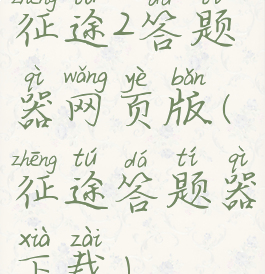 zhēng tú dá tí
征途2答题
qì wǎng yè bǎn
器网页版(
zhēng tú dá tí qì
征途答题器
xià zài
下载)